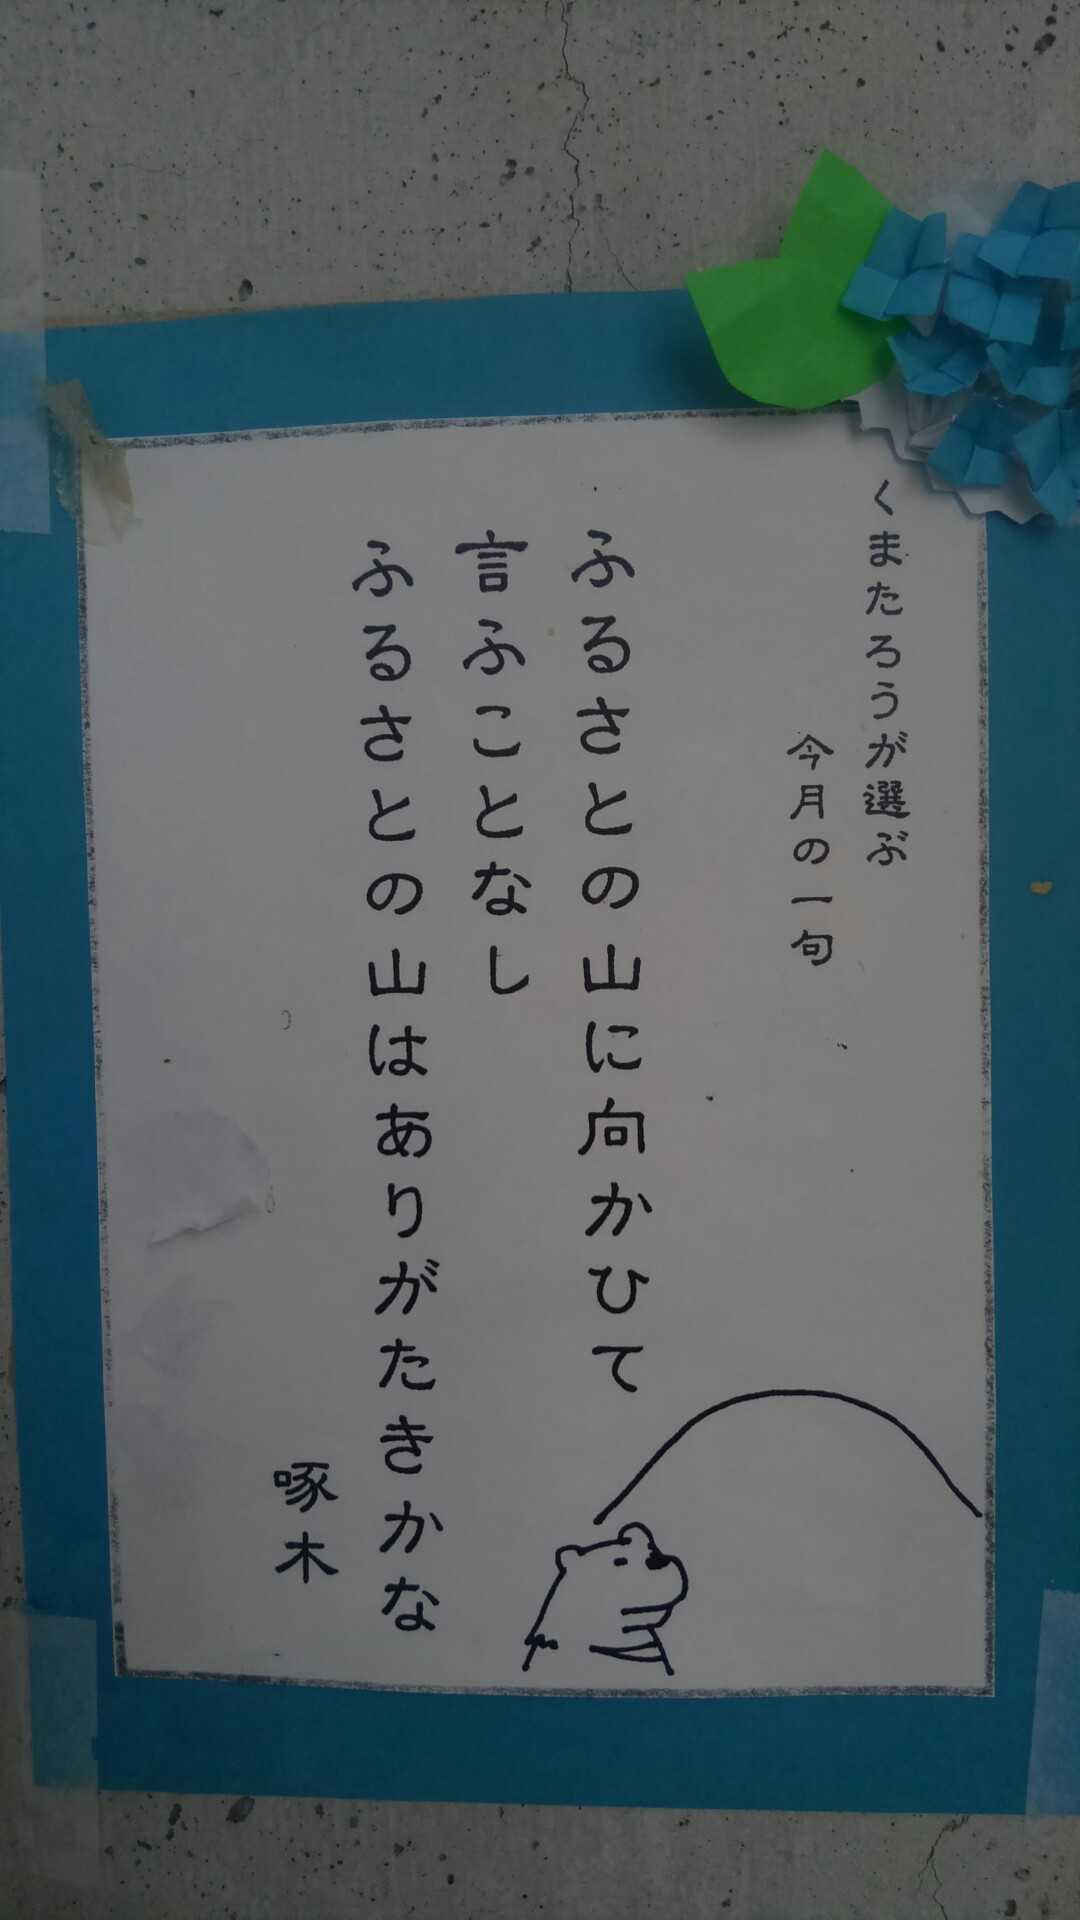 くまたろうが選ぶ
今月の一句
ふるさとの山に向かひて
言ふことなし
ふるさとの山はありがたきかな
啄木